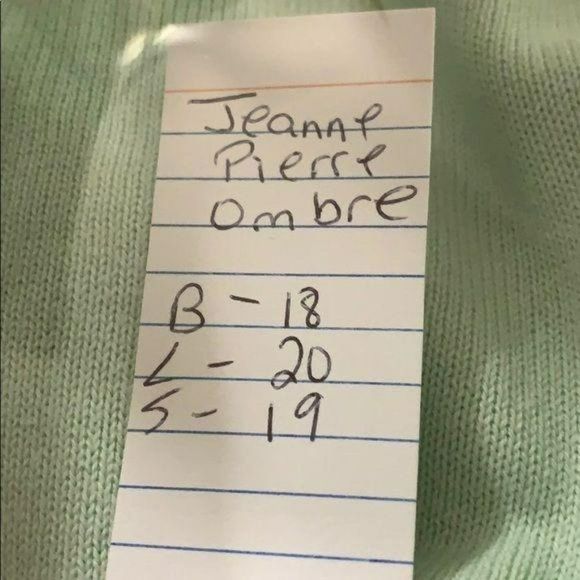 Jeanne
Pierre
Ombre
B - 18
L - 20
S - 19